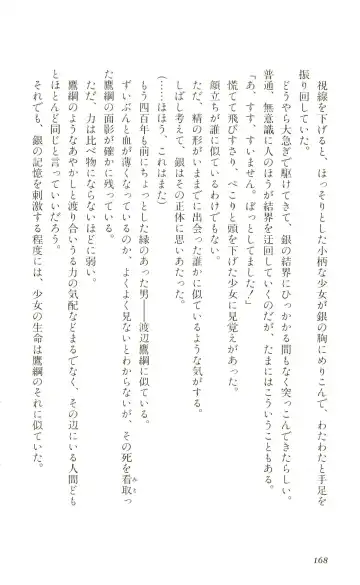 視線を下げると、ほっそりとした小柄な少女が銀の胸にめりこんで、わたわたと手足を
振り回していた。
どうやら大急ぎで駆けてきて、銀の結界にひっかかる間もなく突っこんできたらしい。
普通、無意識に人のほうが結界を迂回していくのだが、たまにはこういうこともある。
「あ、すす、すいません。ぼっとしてました！」
慌てて飛びすさり、ぺこりと頭を下げた少女に見覚えがあった。
顔立ちが誰に似ているわけでもない。
ただ、精の形がいままでに出会った誰かに似ているような気がする。
しばし考えて、銀はその正体に思いあたった。
（……ほほう、これはまた）
もう四百年も前にちょっとした縁のあった男――渡辺鷹綱に似ている。
ずいぶんと血が薄くなっているのか、よくよく見ないとわからないが、その死を看取っ
みと
た鷹綱の面影が確かに残っている。
ただ、力は比べ物にならないほどに弱い。
鷹綱のようなあやかしと渡り合いうる力の気配などまるでなく、その辺にいる人間ども
とほとんど同じと言っていいだろう。
それでも、銀の記憶を刺激する程度には、少女の生命は鷹綱のそれに似ていた。
168